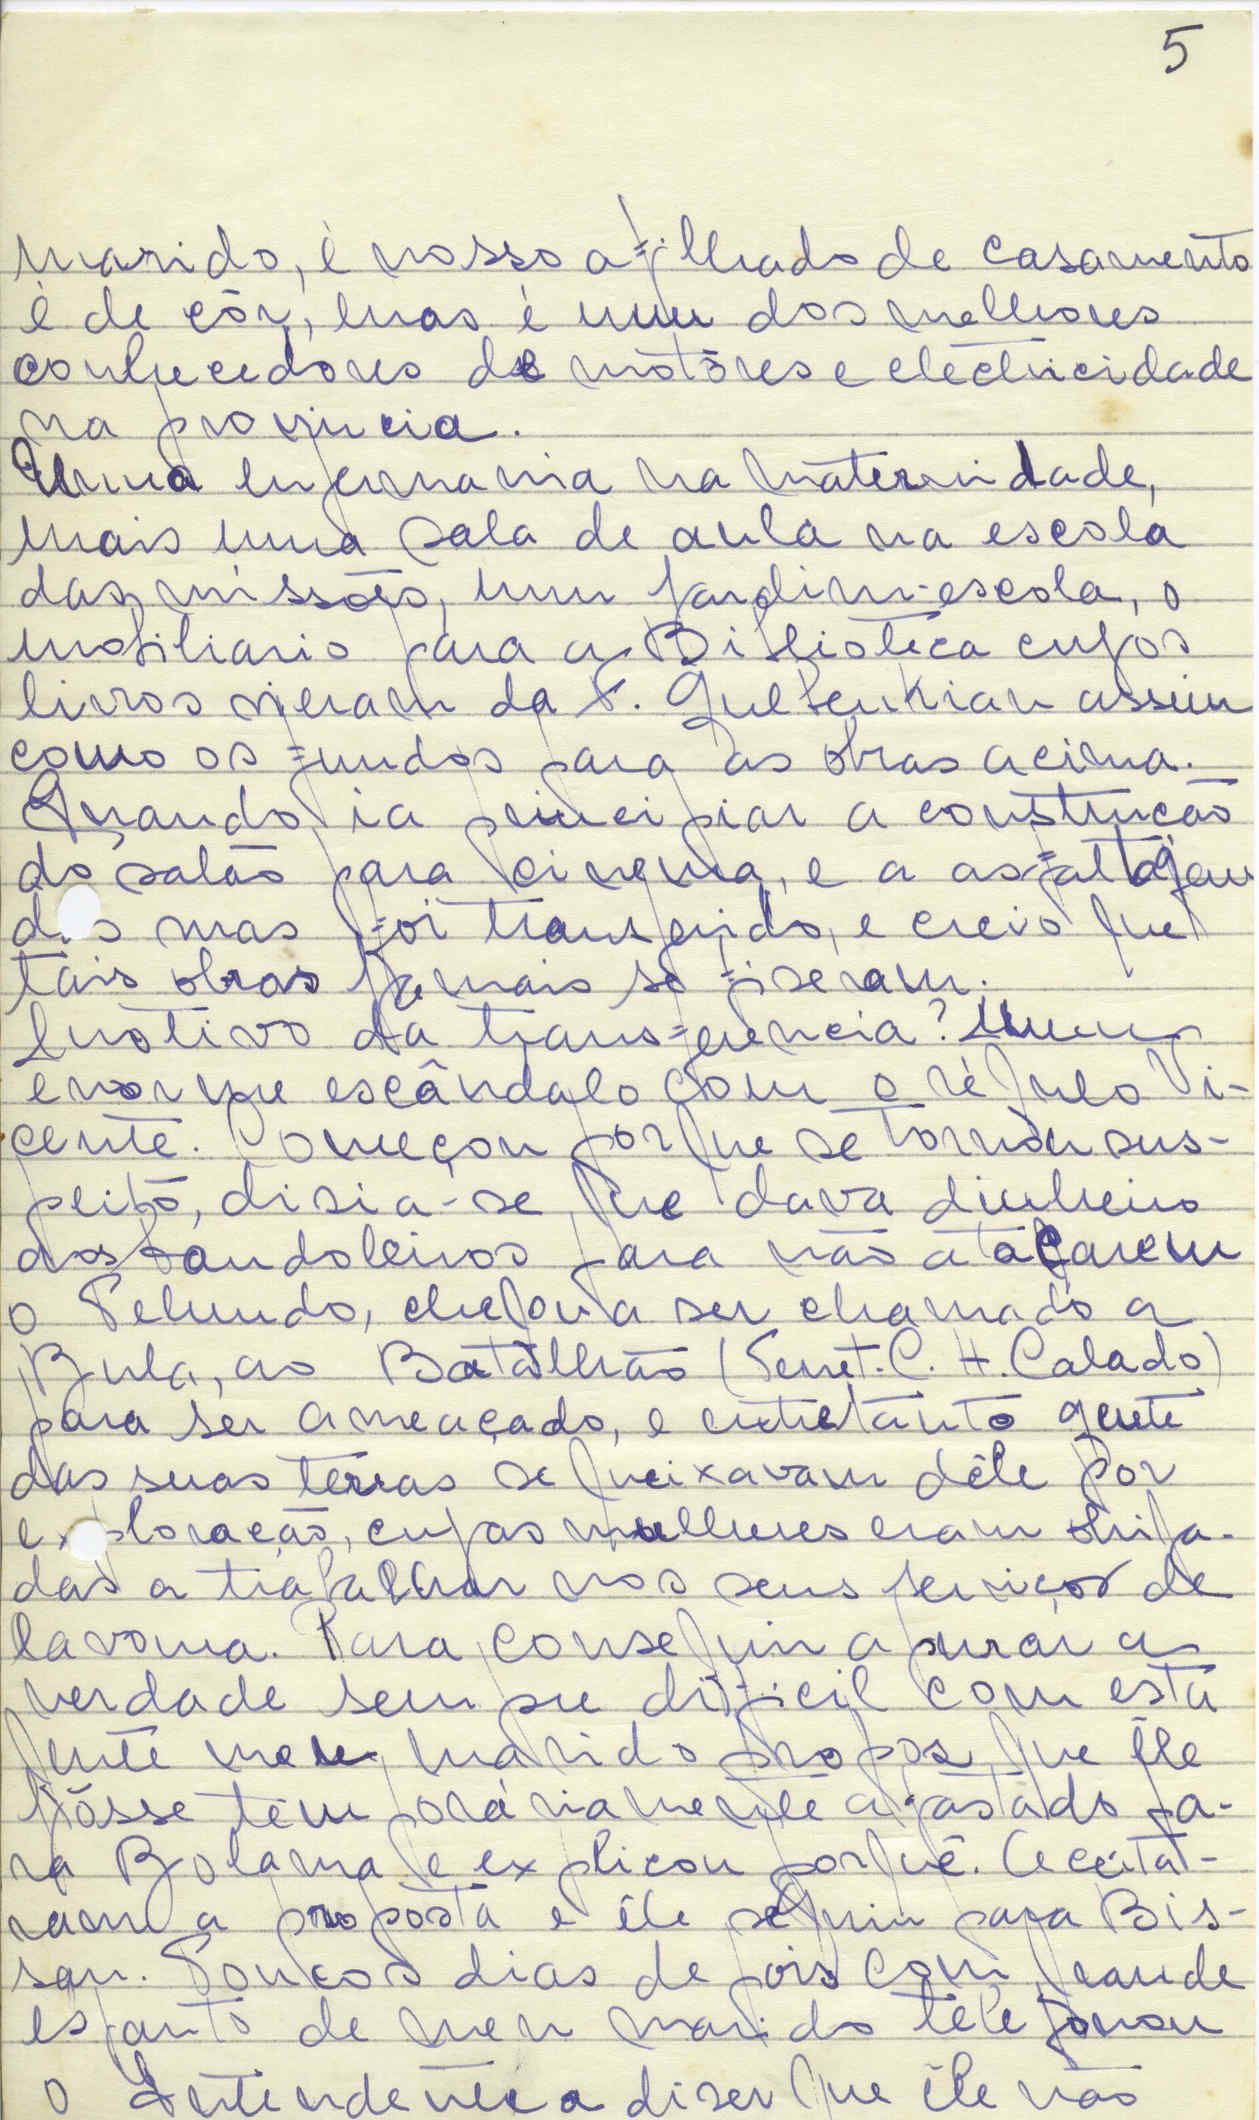 5
marido, é nosso afilhado de casamento
é de côr, mas é um dos melhores
conhecedores de motôres e electricidade
na provincia.
Uma enfermaria na maternidade,
mais uma sala de aula na escola
das missões, um jardim-escola, o
mobiliario para a Biblioteca cujos
livros vieram da F. Gulbenkian assim
como os fundos para as obras acima.
Quando ia principiar a construção
do salão para cinema, e a asfaltagem
das ruas foi transferido, e creio que
tais obras jamais se fiseram.
Motivo da transferencia? Um
enorme escândalo com o régulo Vi-
cente. Começou porque se tornou sus-
peito, disia-se que dava dinheiro
aos bandoleiros para não atacarem
o Pelundo, chegou a ser chamado a
Bula, ao Batalhão (Tenet. C. H. Calado)
para ser ameaçado, e entretanto gente
das suas terras se queixavam dêle por
exploração, cujas mulheres eram obriga-
das a trabalhar nos seus serviços de
lavoura. Para conseguir apurar a
verdade sempre dificil com esta
gente meu marido propos que êle
fôsse temporáriamente afastado pa-
ra Bolama e explicou porquê. Aceita-
ram a proposta e êle seguiu para Bis-
sau. Poucos dias depois com grande
espanto de meu marido telefonou
o Intendente a diser que êle não